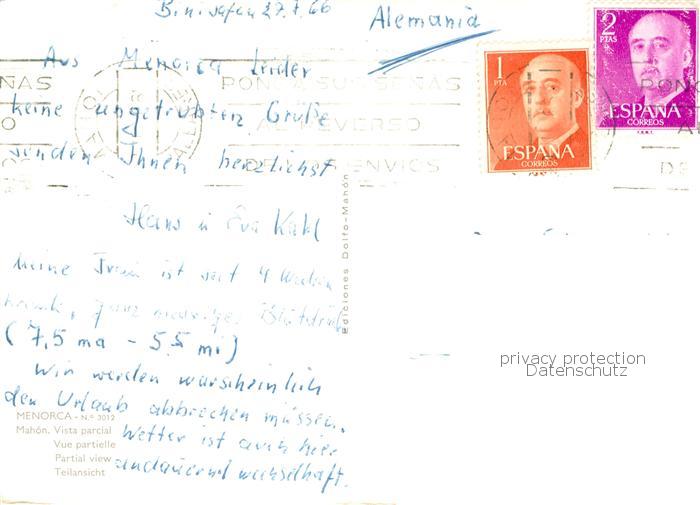 Binisafua 27.7.66
Alemania
Aus Menorca leider
keine ungetrübten Grüße
senden Ihnen herzlichst
Hans u Eva Kahl
Meine Frau ist seit 4 Wochen
krank, ganz niedriger Blutdruck
(7,5 ma - 5.5 mi)
Wir werden warscheinlich
den Urlaub abbrechen müssen.
Wetter ist auch hier
andauernd wechselhaft.
MENORCA - N.º 3012
Mahón. Vista parcial
Vue partielle
Partial view
Teilansicht
Ediciones Dolfo-Mahón
1
PTA
ESPAÑA
CORREOS
2
PTAS
ESPAÑA
CORREOS
F.N.M.T.
PONGA SUS SEÑAS
AL REVERSO
DE SUS ENVIOS
privacy protection
Datenschutz